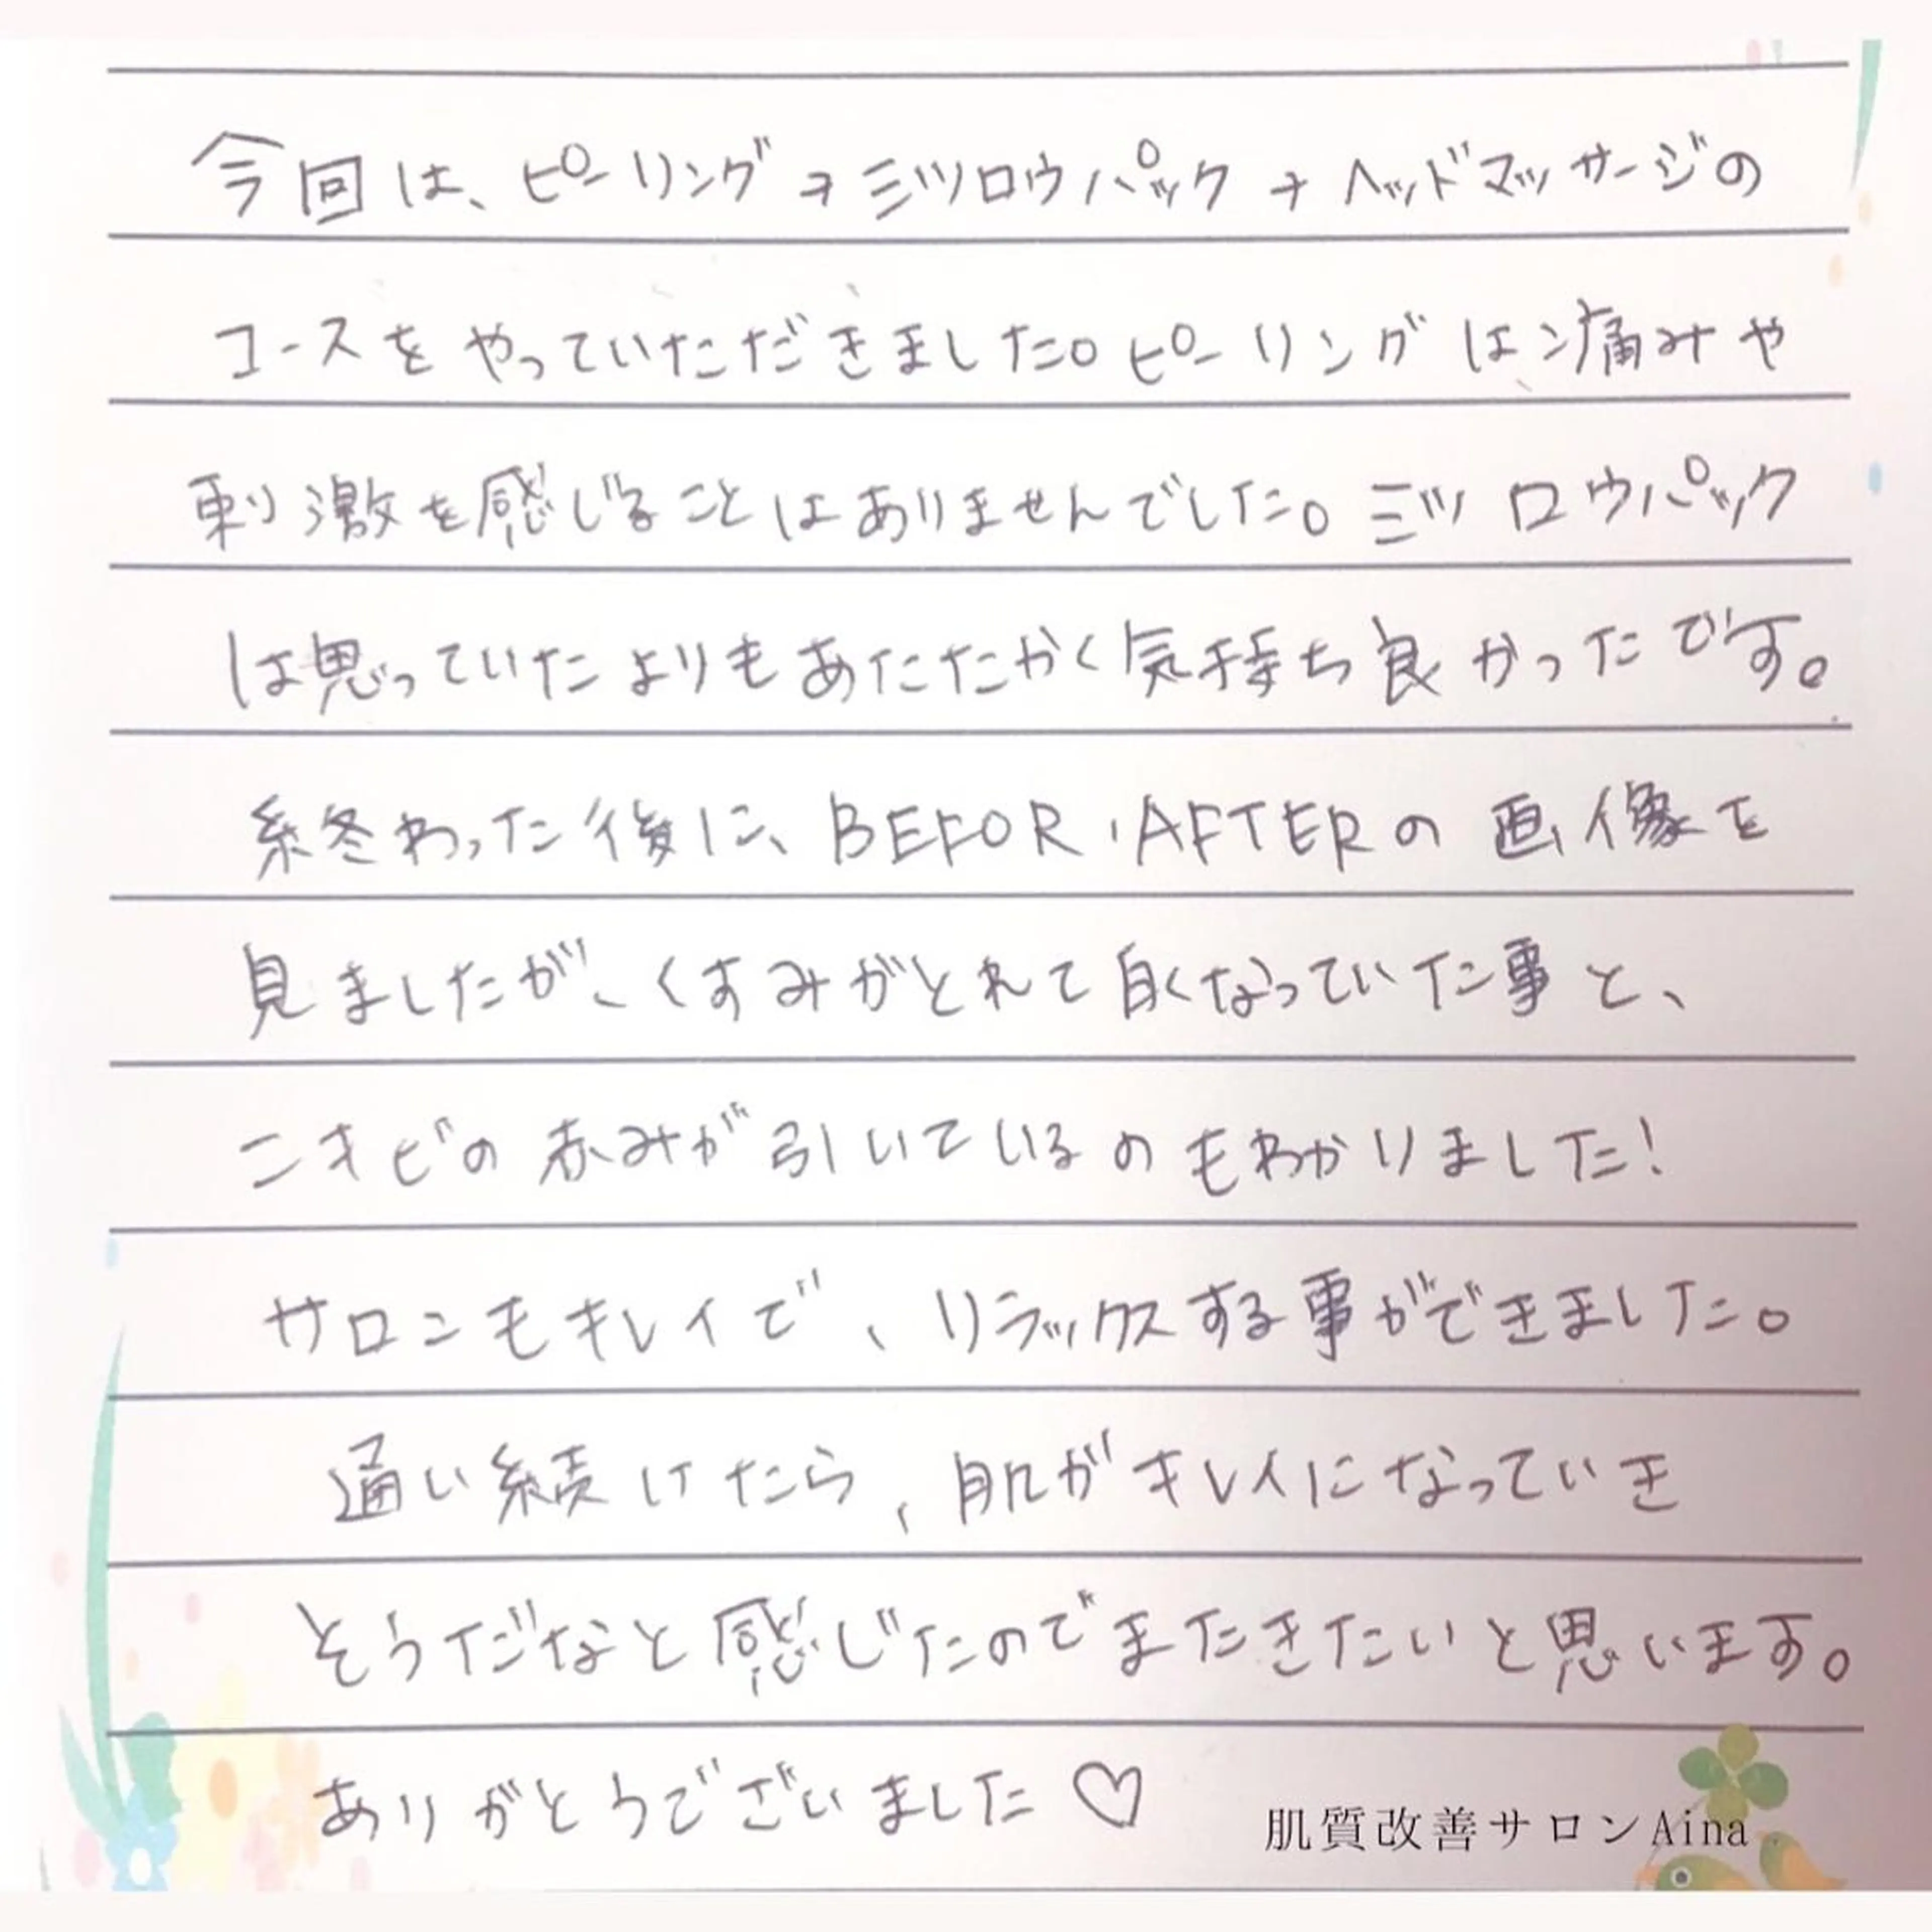 今回は、ピーリング+ミツロウパック+ヘッドマッサージの
コースをやっていただきました。ピーリングは痛みや
刺激を感じることはありませんでした。ミツロウパック
は思っていたよりもあたたかく気持ち良かったです。
終わった後に、BEFOR・AFTERの画像を
見ましたが、くすみがとれて白くなっていた事と、
ニキビの赤みが引いているのもわかりました!
サロンもキレイで、リラックスする事ができました。
通い続けたら、肌がキレイになっていき
そうだなと感じたのでまたきたいと思います。
ありがとうでございました♡
肌質改善サロンAina